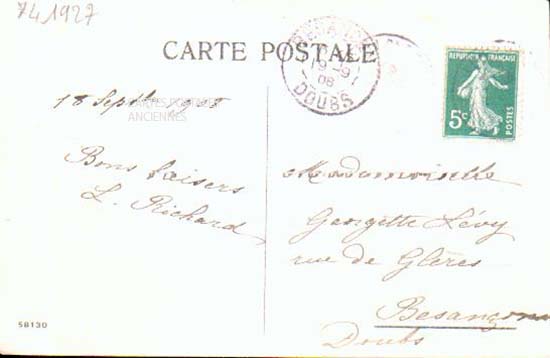 741927
CARTE POSTALE
9-9
08
DOUBS
RÉPUBLIQUE FRANÇAISE
5c
POSTES
18 Septbre 1908
CARTES POSTALES
ANCIENNES
Bons baisers
L. Richard
Mademoiselle
Georgette Lévy
rue de Glères
Besançon
Doubs
58130